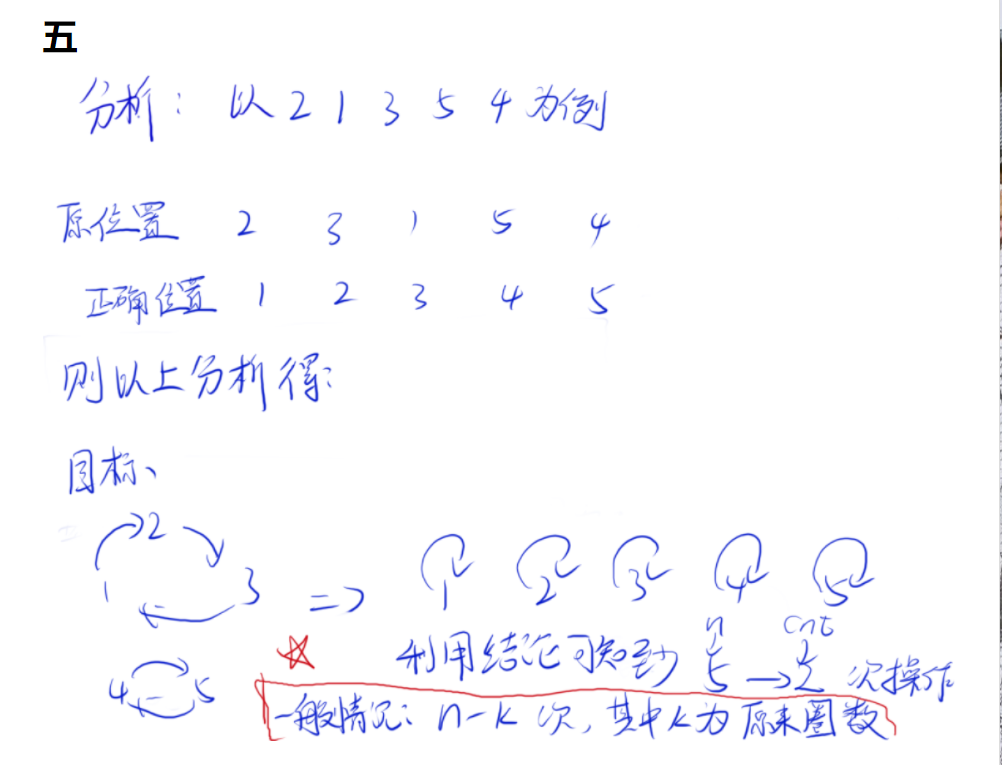 五
分析：以 2 1 3 5 4 为例
原位置 2 3 1 5 4
正确位置 1 2 3 4 5
则以上分析得：
目标、
2
1 3 => 1 2 3 4 5
n cnt
利用结论可知到 5 → 2 次操作
4 5
一般情况：n-k 次，其中k为原来圈数